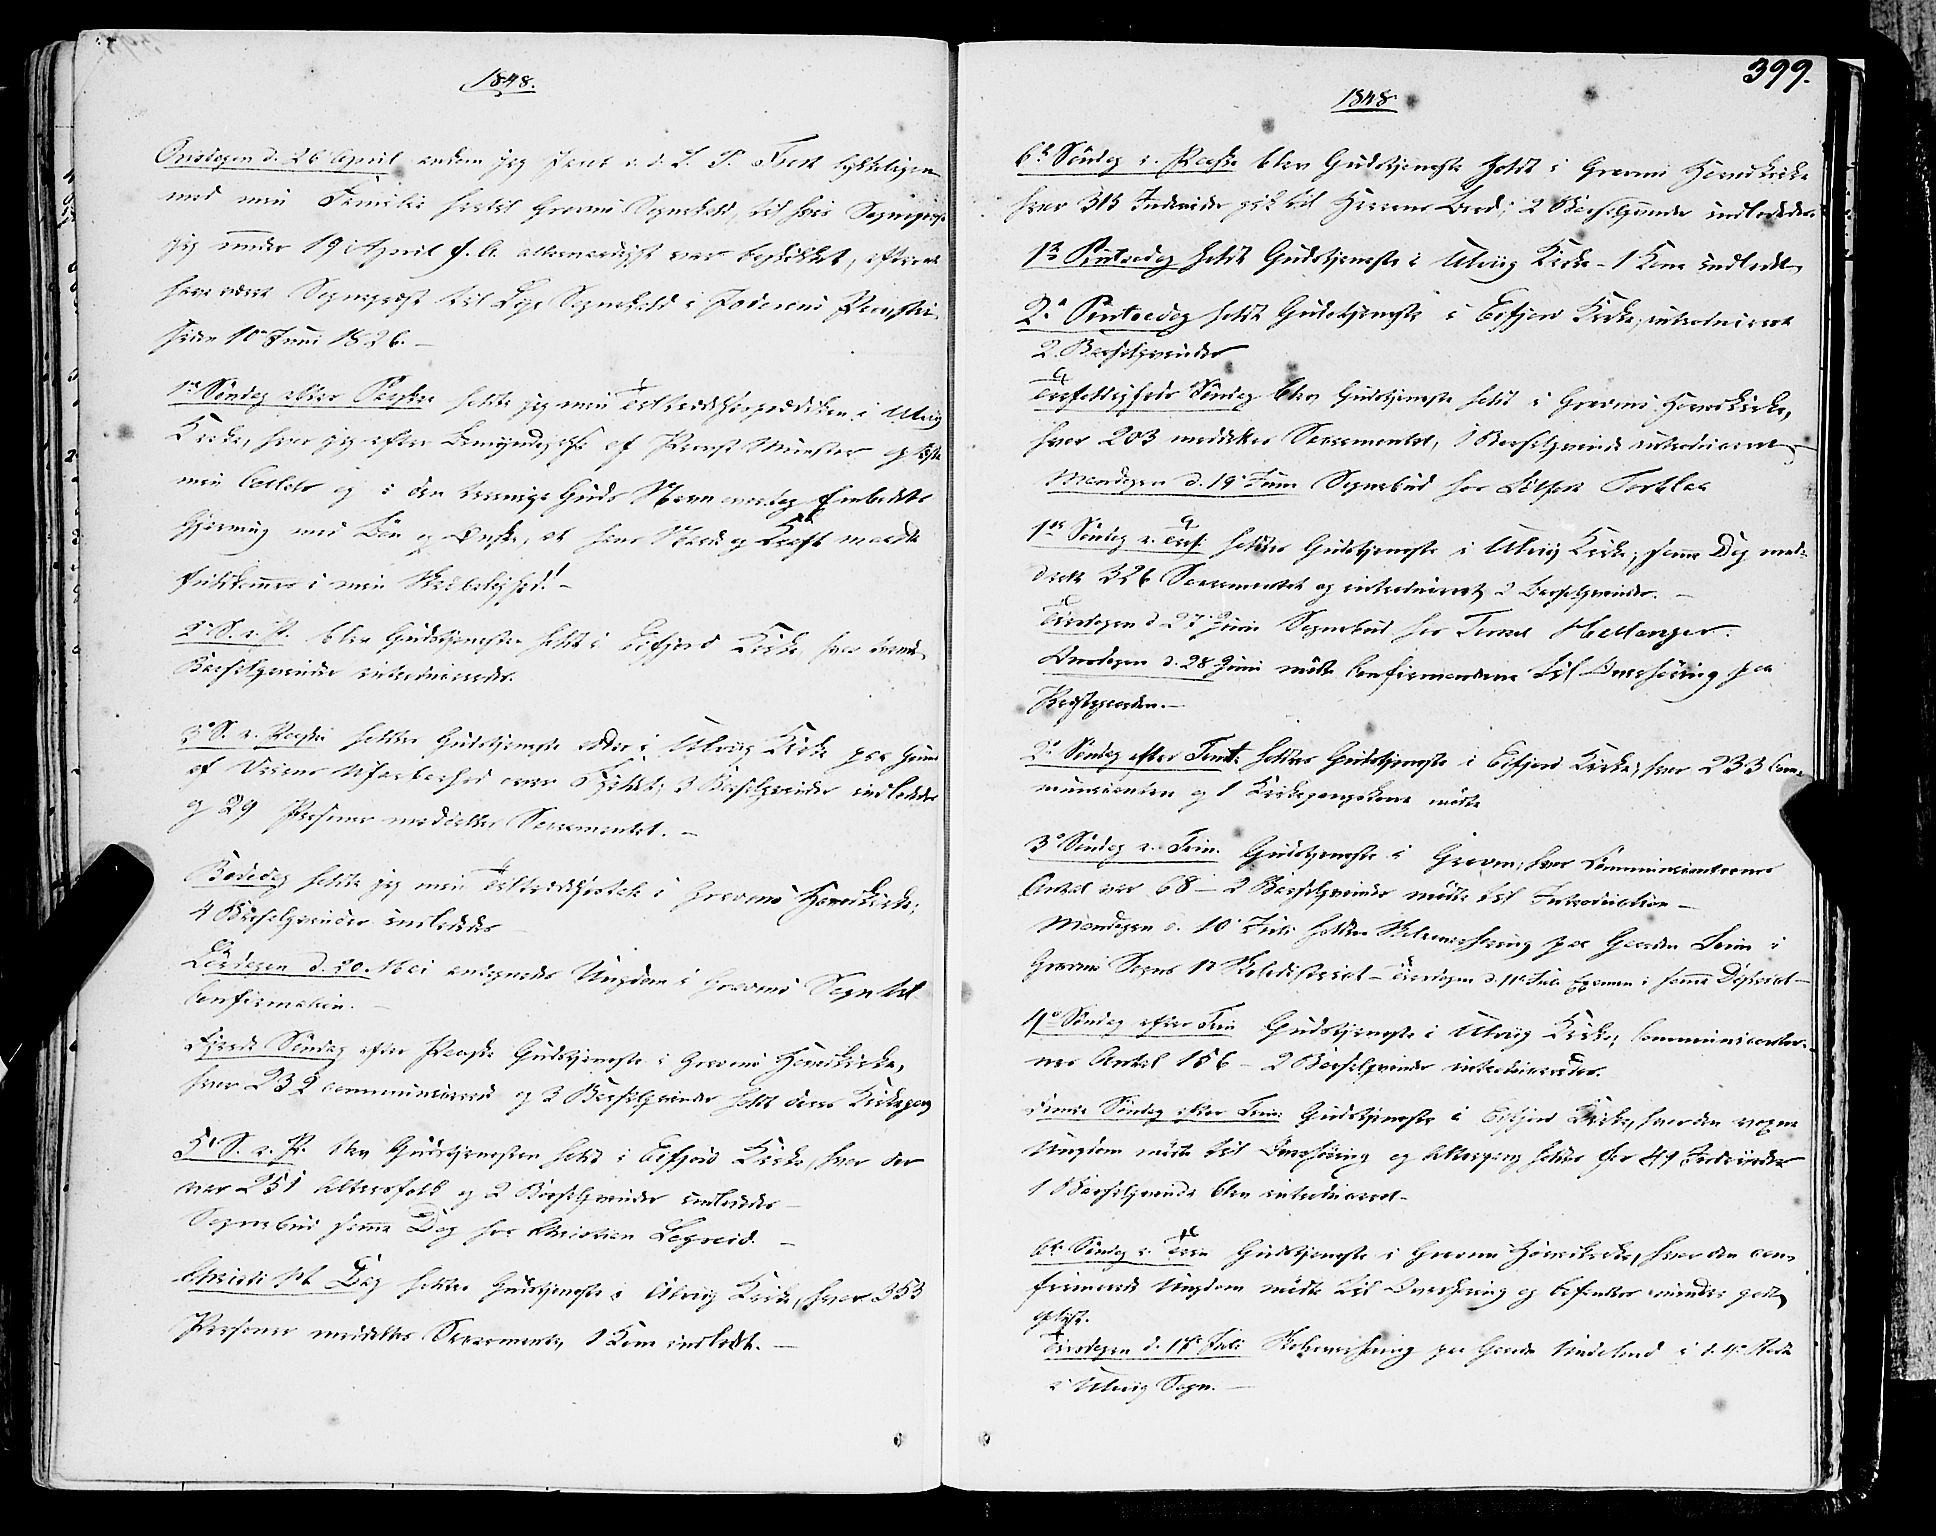 1848.
Onsdagen d. 26 April ankom jeg
med min Familie hertil Graven Sognekald, til hvis Sognepræst
jeg under 19 April d. A. allernaadigst var beskikket, efter at
have været Sognepræst til Lye Sognekald i Jæderens Provsti
siden 10de Juni 1826. –
1ste Søndag efter Paaske holdt jeg min Tiltrædelsesprædiken i Ulvig
Kirke, hvor jeg efter Bemyndigelse af Provst Münster
min og i den treenige Guds Navn modtog Embedets
Gjerning med Bøn og Ønske, at hans Naade og Kraft maatte
fuldkommes i min Skrøbelighed! –
2den S. e. P. blev Gudstjenesten holdt i Eifjord Kirke, hvor
Barselqvinder introduceredes.
3die S. e. Paaske holdtes Gudstjeneste atter i Ulvig Kirke paa Grund
af Veiens Ufarbarhed over Fjeldet; 3 Barselqvinder indlededes
og 29 Personer meddeltes Sacramentet. –
Bededag holdt jeg min Tiltrædelsestale i Gravens Hovedkirke;
4 Barselqvinder indlededes
Løverdagen d. 20. Mai antegnedes Ungdom i Gravens Sogn til
Confirmation. –
Fjerde Søndag efter Paaske Gudstjeneste i Gravens Hovedkirke,
hvor 232 communicerede og 3 Barselqvinder holdt deres Kirkegang
5te S. e. P. blev Gudstjenesten holdt i Eifjord Kirke, hvor der
var 251 Altersfolk og 2 Barselqvinder indlededes –
Sognebud samme Dag hos Christian Legreid. –
Christi Hf. Dag holdtes Gudstjeneste i Ulvig Kirke, hvor 353
Personer meddeltes Sacramentet, 1 Kone indledt. –
399.
1848
6te Søndag e. Paaske blev Gudstjeneste holdt i Gravens Hovedkirke
hvor 315 Individer gik til Herrens Bord; 2 Barselqvinder indlededes
1ste Pintsedag holdt Gudstjeneste i Ulvig Kirke – 1 Kone indledt
2den Pintsedag holdt Gudstjeneste i Eifjord Kirke, introduceret
2 Barselqvinder
Trefoldigheds Søndag blev Gudstjeneste holdt i Gravens Hovedkirke,
hvor 203 meddeltes Sacramentet, 1 Barselqvinde introduceret –
Mandagen d. 19de Juni Sognebud hos
1ste Søndag e. Tref. holdtes Gudstjeneste i Ulvig Kirke; samme Dag med-
deelt 326 Sacramentet og introduceret 2 Barselqvinder. –
Tirsdagen d. 27 Juni Sognebud hos Hellanger.
Onsdagen d. 28 Juni mødte Confirmanderne til Overhøring paa
Præstegaarden. –
2den Søndag efter Trint. holdtes Gudstjeneste i Eifjord Kirke; hvor 233 Com-
municanter og 1 Kirkegangskone mødte
3die Søndag e. Trin. Gudstjeneste i Graven; hvor Communicanternes
Antal var 68 – 2 Barselqvinder mødte til Introduction –
Mandagen d. 10de Juli holdtes Skoleoverhøring paa Gaarden Seim i
Gravens Sogns 1ste Skoledistrict – Tirsdagen d. 11te Juli Examen i samme District –
4de Søndag efter Trin Gudstjeneste i Ulvig Kirke; Communicanter-
nes Antal 156 – 2 Barselqvinder introduceredes.
Femte Søndag efter Trin: Gudstjeneste i Eifjord Kirke, hvor den
Ungdom mødte til Overhøring og Altergang holdtes for 41 Individer
1 Barselqvinde blev introduceret –
6te Søndag e. Trin Gudstjeneste i Gravens Hovedkirke, hvor den con-
firmerede Ungdom mødte til Overhøring og befandtes mindre godt
oplyst.
Tirsdagen d. Juli Skoleoverhøring paa Gaarden i d. 4de Rode
i Ulvig Sogn. –